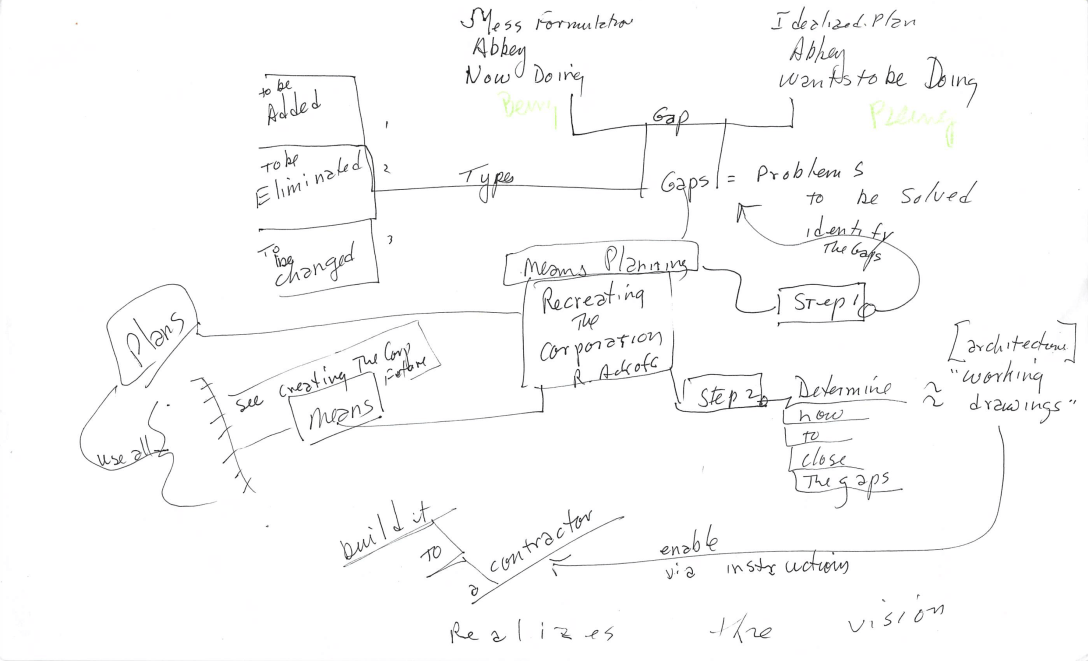 Mess Formulation
Abbey
Now Doing
Being
Idealized Plan
Abbey
wants to be Doing
Gap
to be
Added
1
To be
Eliminated
2
To
be
changed
3
Types
Gaps = Problems
to be Solved
identify
The Gaps
Means Planning
Step 1
Recreating
The
Corporation
R. Ackoff
Plans
See Creating The Corp
Future
means
use all
Step 2
Determine
how
to
close
The gaps
≈
[architecture]
"working
drawings"
build it
TO
a contractor
enable
via instructions
Realizes the vision